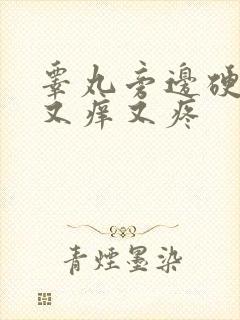 睾丸旁边硬
又痒又疼
青煙墨染